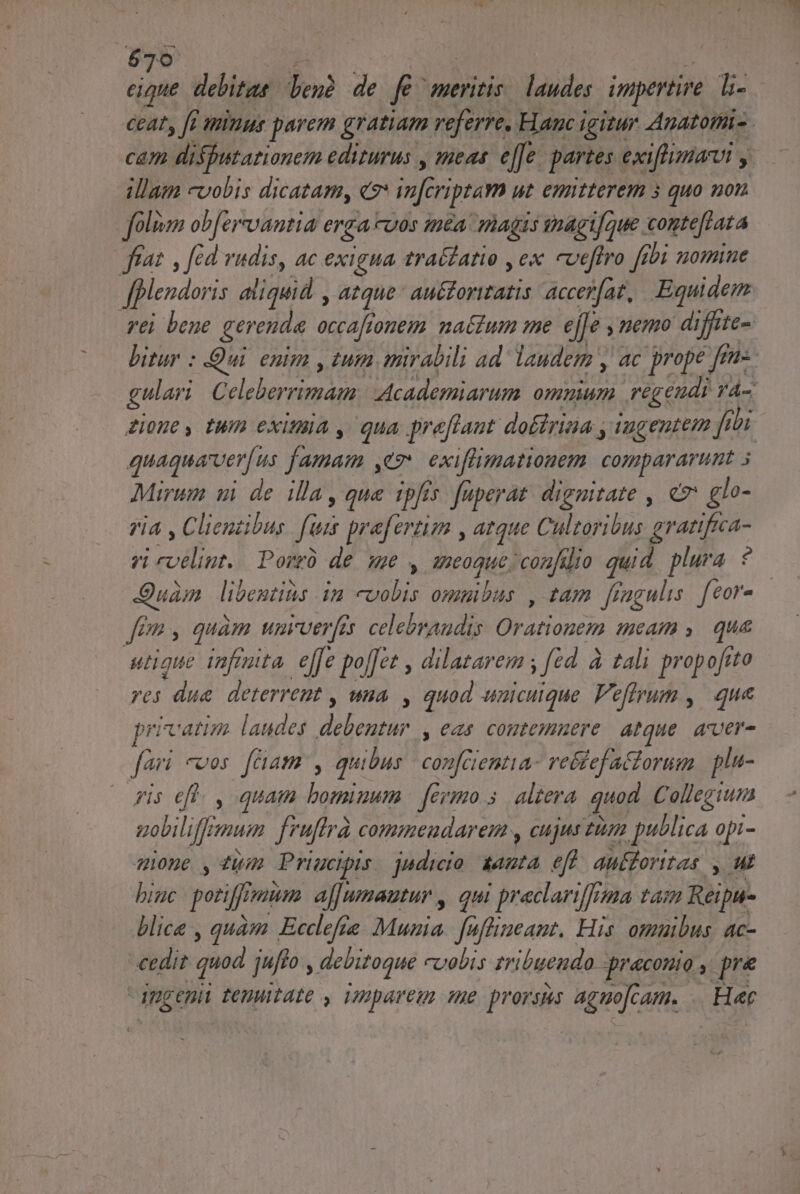 670
eique debitas benè de ſe meritis laudes impertire li-
ceat, ſi minus parem gratiam referre. Hanc igitur Anatomi-
cam diſputationem editurus, meas eſſe partes exiſtimavi,
illam vobis dicatam, & inſcriptam ut emitterem; quo non
ſolùm obſervantia erga vos mea magis magiſque conteſtata
fiat, ſed rudis, ac exigua tractatio, ex veſtro ſibi nomine
ſplendoris aliquid, atque auctoritatis accerſat. Equidem
rei bene gerendæ occaſionem nactum me eſſe, nemo diffite-
bitur: Qui enim, tum mirabili ad laudem, ac prope ſin-
gulari Celeberrimam Academiarum omnium regendi ra-
tione, tum eximia, qua præſtant doctrina, ingentem ſibi
quaquaverſus famam, & exiſtimationem compararunt;
Mirum ni de illa, quæ ipſis ſuperat dignitate, & glo-
ria, Clientibus ſuis præſertim, atque Cultoribus gratifica-
ri velint. Porrò de me, meoque conſilio quid plura?
Quàm libentiùs in vobis omnibus, tam ſingulis ſeor-
ſim, quàm univerſis celebrandis Orationem meam, quæ
utique infinita eſſe poſſet, dilatarem; ſed à tali propoſito
res duæ deterrent, una, quod unicuique Veſtrum, quæ
privatim laudes debentur, eas contemnere atque aver-
ſari vos ſciam, quibus conſcientia rectefactorum plu-
ris eſt, quam hominum ſermo; altera quod Collegium
nobiliſſimum fruſtrà commendarem, cujus tùm publica opi-
nione, tùm Principis judicio tanta eſt auctoritas, ut
hinc potiſſimùm aſſumantur, qui præclariſſima tam Reipu-
blicæ, quàm Eccleſiæ Munia ſuſtineant. His omnibus ac-
cedit quod juſto, debitoque vobis tribuendo præconio, præ
ingenii tenuitate, imparem me prorsùs agnoſcam. Hæc